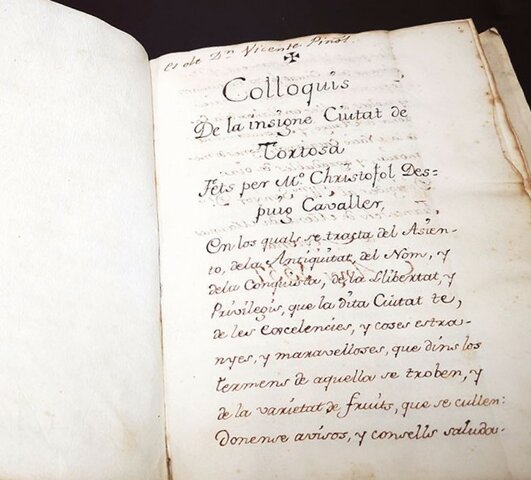 Es de Dn. Vicente Pinol.
✠
Colloquis
De la insigne Ciutat de
Tortosa
Fets per Mo. Christofol Des=
puig Cavaller,
En los quals se tracta del Asien-
to, dela Antiquitat, del Nom, y
dela Conquista, de la Llibertat, y
Privilegis, que la dita Ciutat te,
de les Excelencies, y coses estra-
nyes, y maravelloses, que dins los
termens de aquella se troben, y
de la varietat de fruits, que se cullen:
Donense avisos, y consells saluda-